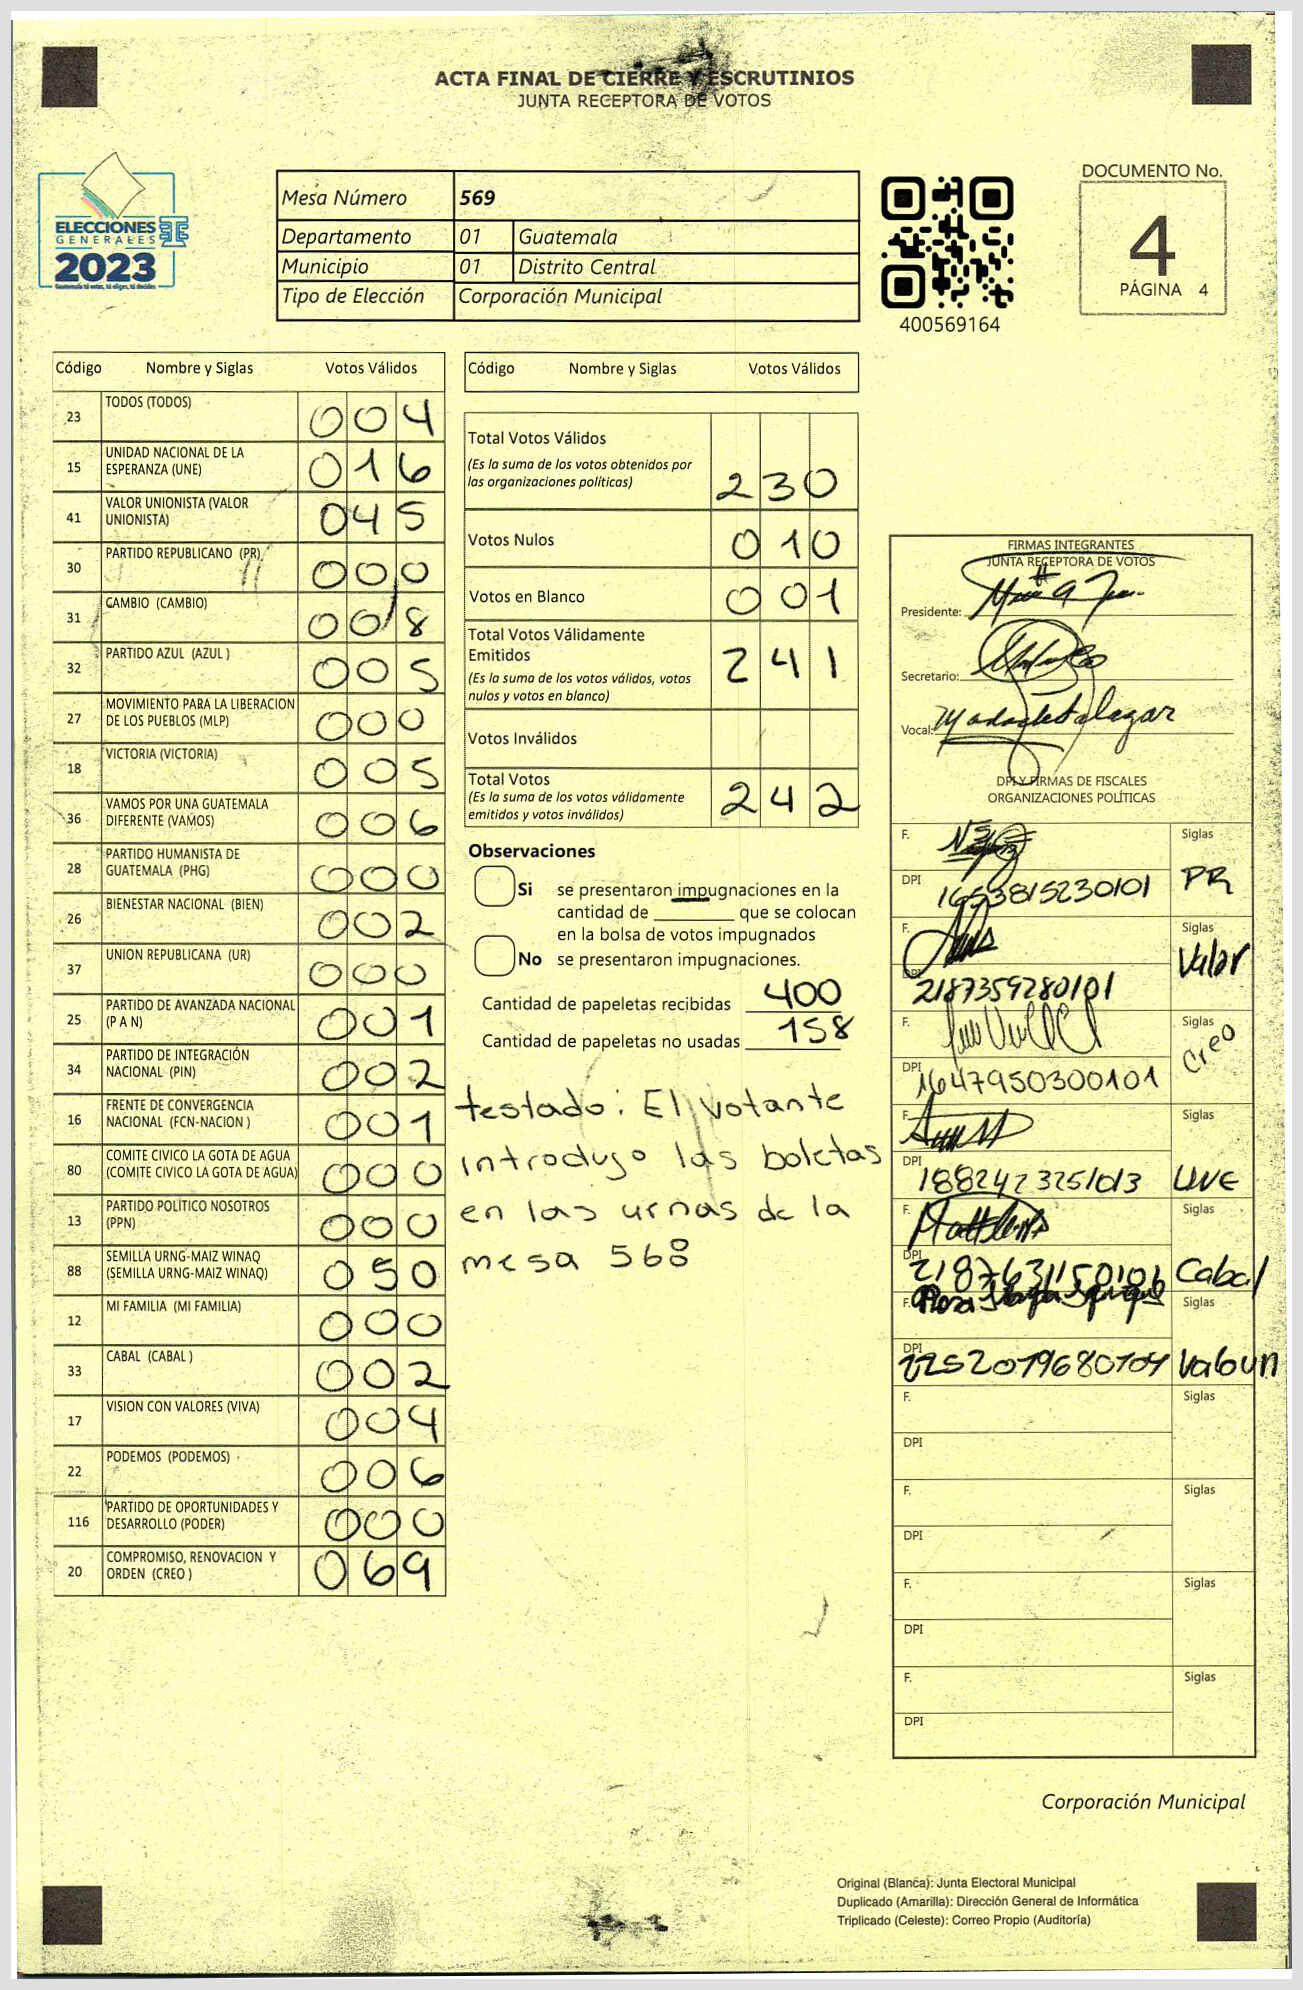 ACTA FINAL DE CIERRE Y ESCRUTINIOS
JUNTA RECEPTORA DE VOTOS
ELECCIONES
GENERALES
2023
Guatemala tú votas, tú eliges, tú decides
Mesa Número 569
Departamento 01 Guatemala
Municipio 01 Distrito Central
Tipo de Elección Corporación Municipal
400569164
DOCUMENTO No.
4
PÁGINA 4
Código Nombre y Siglas Votos Válidos
23 TODOS (TODOS) 004
15 UNIDAD NACIONAL DE LA
ESPERANZA (UNE) 016
41 VALOR UNIONISTA (VALOR
UNIONISTA) 045
30 PARTIDO REPUBLICANO (PR) 000
31 CAMBIO (CAMBIO) 008
32 PARTIDO AZUL (AZUL ) 005
27 MOVIMIENTO PARA LA LIBERACION
DE LOS PUEBLOS (MLP) 000
18 VICTORIA (VICTORIA) 005
36 VAMOS POR UNA GUATEMALA
DIFERENTE (VAMOS) 006
28 PARTIDO HUMANISTA DE
GUATEMALA (PHG) 000
26 BIENESTAR NACIONAL (BIEN) 002
37 UNION REPUBLICANA (UR) 000
25 PARTIDO DE AVANZADA NACIONAL
(P A N) 001
34 PARTIDO DE INTEGRACIÓN
NACIONAL (PIN) 002
16 FRENTE DE CONVERGENCIA
NACIONAL (FCN-NACION ) 001
80 COMITE CIVICO LA GOTA DE AGUA
(COMITE CIVICO LA GOTA DE AGUA) 000
13 PARTIDO POLITICO NOSOTROS
(PPN) 000
88 SEMILLA URNG-MAIZ WINAQ
(SEMILLA URNG-MAIZ WINAQ) 050
12 MI FAMILIA (MI FAMILIA) 000
33 CABAL (CABAL ) 002
17 VISION CON VALORES (VIVA) 004
22 PODEMOS (PODEMOS) 006
116 PARTIDO DE OPORTUNIDADES Y
DESARROLLO (PODER) 000
20 COMPROMISO, RENOVACION Y
ORDEN (CREO ) 069
Código Nombre y Siglas Votos Válidos
Total Votos Válidos
(Es la suma de los votos obtenidos por
las organizaciones políticas) 230
Votos Nulos 010
Votos en Blanco 001
Total Votos Válidamente
Emitidos 241
(Es la suma de los votos válidos, votos
nulos y votos en blanco)
Votos Inválidos
Total Votos
(Es la suma de los votos válidamente
emitidos y votos inválidos) 242
Observaciones
Si se presentaron impugnaciones en la
cantidad de ________ que se colocan
en la bolsa de votos impugnados
No se presentaron impugnaciones.
Cantidad de papeletas recibidas 400
Cantidad de papeletas no usadas 158
testado: El votante
introdujo las boletas
en las urnas de la
mesa 568
FIRMAS INTEGRANTES
JUNTA RECEPTORA DE VOTOS
Presidente:
Secretario:
Vocal:
DPI Y FIRMAS DE FISCALES
ORGANIZACIONES POLÍTICAS
F. Siglas
DPI 1653815230101 PR
F. Siglas
DPI 2187359280101 Valor
F. Siglas
DPI 1647950300101 Creo
F. Siglas
DPI 1882423251013 UNE
F. Siglas
DPI 2187631150101 Cabal
F. Siglas
DPI 2252079680101
F. Siglas
DPI
F. Siglas
DPI
F. Siglas
DPI
F. Siglas
DPI
Corporación Municipal
Original (Blanca): Junta Electoral Municipal
Duplicado (Amarilla): Dirección General de Informática
Triplicado (Celeste): Correo Propio (Auditoría)